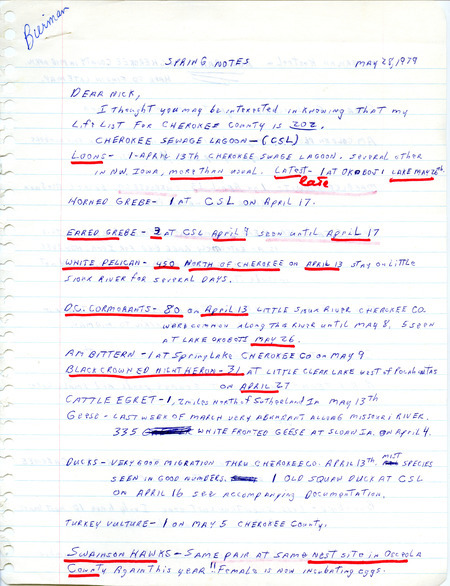 Bierman
SPRING NOTES MAY 28, 1979
DEAR NICK,
I thought you may be interested in knowing that my
Life List for Cherokee County is 202.
CHEROKEE SEWAGE LAGOON - (CSL)
LOONS - 1-APRIL 13th CHEROKEE SWAGE LAGOON. Several other
in N.W. IOWA, more than usual. LATEST - 1 AT OKOBOJI LAKE MAY 26th.
late
HORNED GREBE - 1 AT CSL ON April 17.
EARED GREBE - 3 AT CSL April 9 seen until April 17
WHITE PELICAN - 450 NORTH OF CHEROKEE on APRIL 13 stay on Little
Sioux River for several days.
D.C. CORMORANTS - 80 on April 13 LITTLE SIOUX RIVER CHEROKEE CO.
were common along the river until may 8. 5 seen
at LAKE OKOBOJI MAY 26.
AM BITTERN - 1 AT Spring LAKE CHEROKEE CO on MAY 9
BLACK CROWNED NIGHT HERON - 31 AT LITTLE CLEAR LAKE west of Pocahontas
on APRIL 27
CATTLE EGRET - 1, 2 miles north of Sutherland IA MAY 13th
Geese - LAST WEEK OF MARCH VERY ABUNDANT ALLONG MISSOURI RIVER.
335 WHITE FRONTED GEESE AT SLOAN IA. on April 4.
DUCKS - VERY GOOD MIGRATION THRU CHEROKEE CO. APRIL 13th. MOST SPECIES
SEEN IN GOOD NUMBERS. 1 OLD SQUAW DUCK AT CSL
on APRIL 16 see accompanying Documentation.
TURKEY VULTURE - 1 on MAY 5 CHEROKEE County.
SWAINSON HAWKS - SAME PAIR AT SAME NEST SITE IN OSCEOLA
County Again this year!! Female is now incubating eggs.